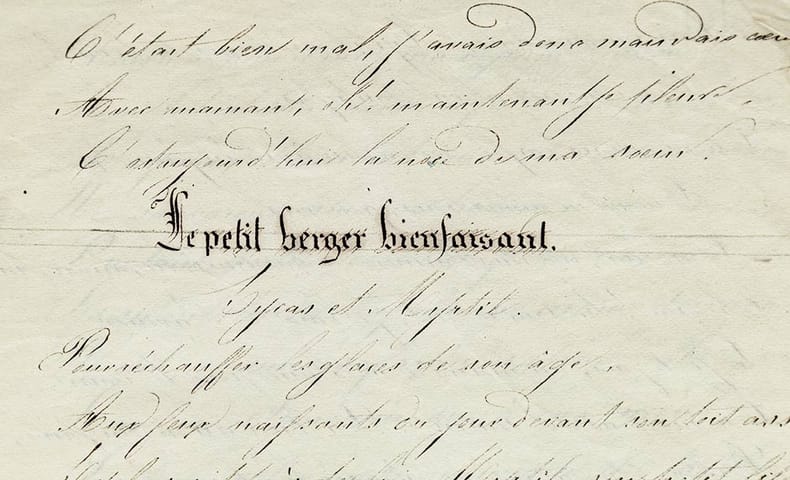 C'était bien mal, j'avais donc mauvais cœur
Avec maman, oh! maintenant je pleure,
C'estaujourd'hui la noce de ma sœur.
Le petit berger bienfaisant.
Lycas et Myrtil.
Pour réchauffer les glaces de son âge,
Aux feux naissants du jour devant son toit ass
Myrtil